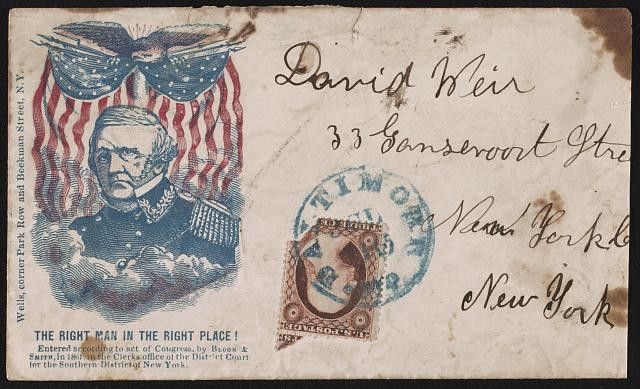 Wells, corner Park Row and Beekman Street, N.Y.
THE RIGHT MAN IN THE RIGHT PLACE!
Entered according to act of Congress, by BLOOM &
SMITH, in 1861, in the Clerks office of the District Court
for the Southern District of New York.
David Weir
33 Gansevoort Stre
New York
New York
TIMORE
U.S. POSTAGE